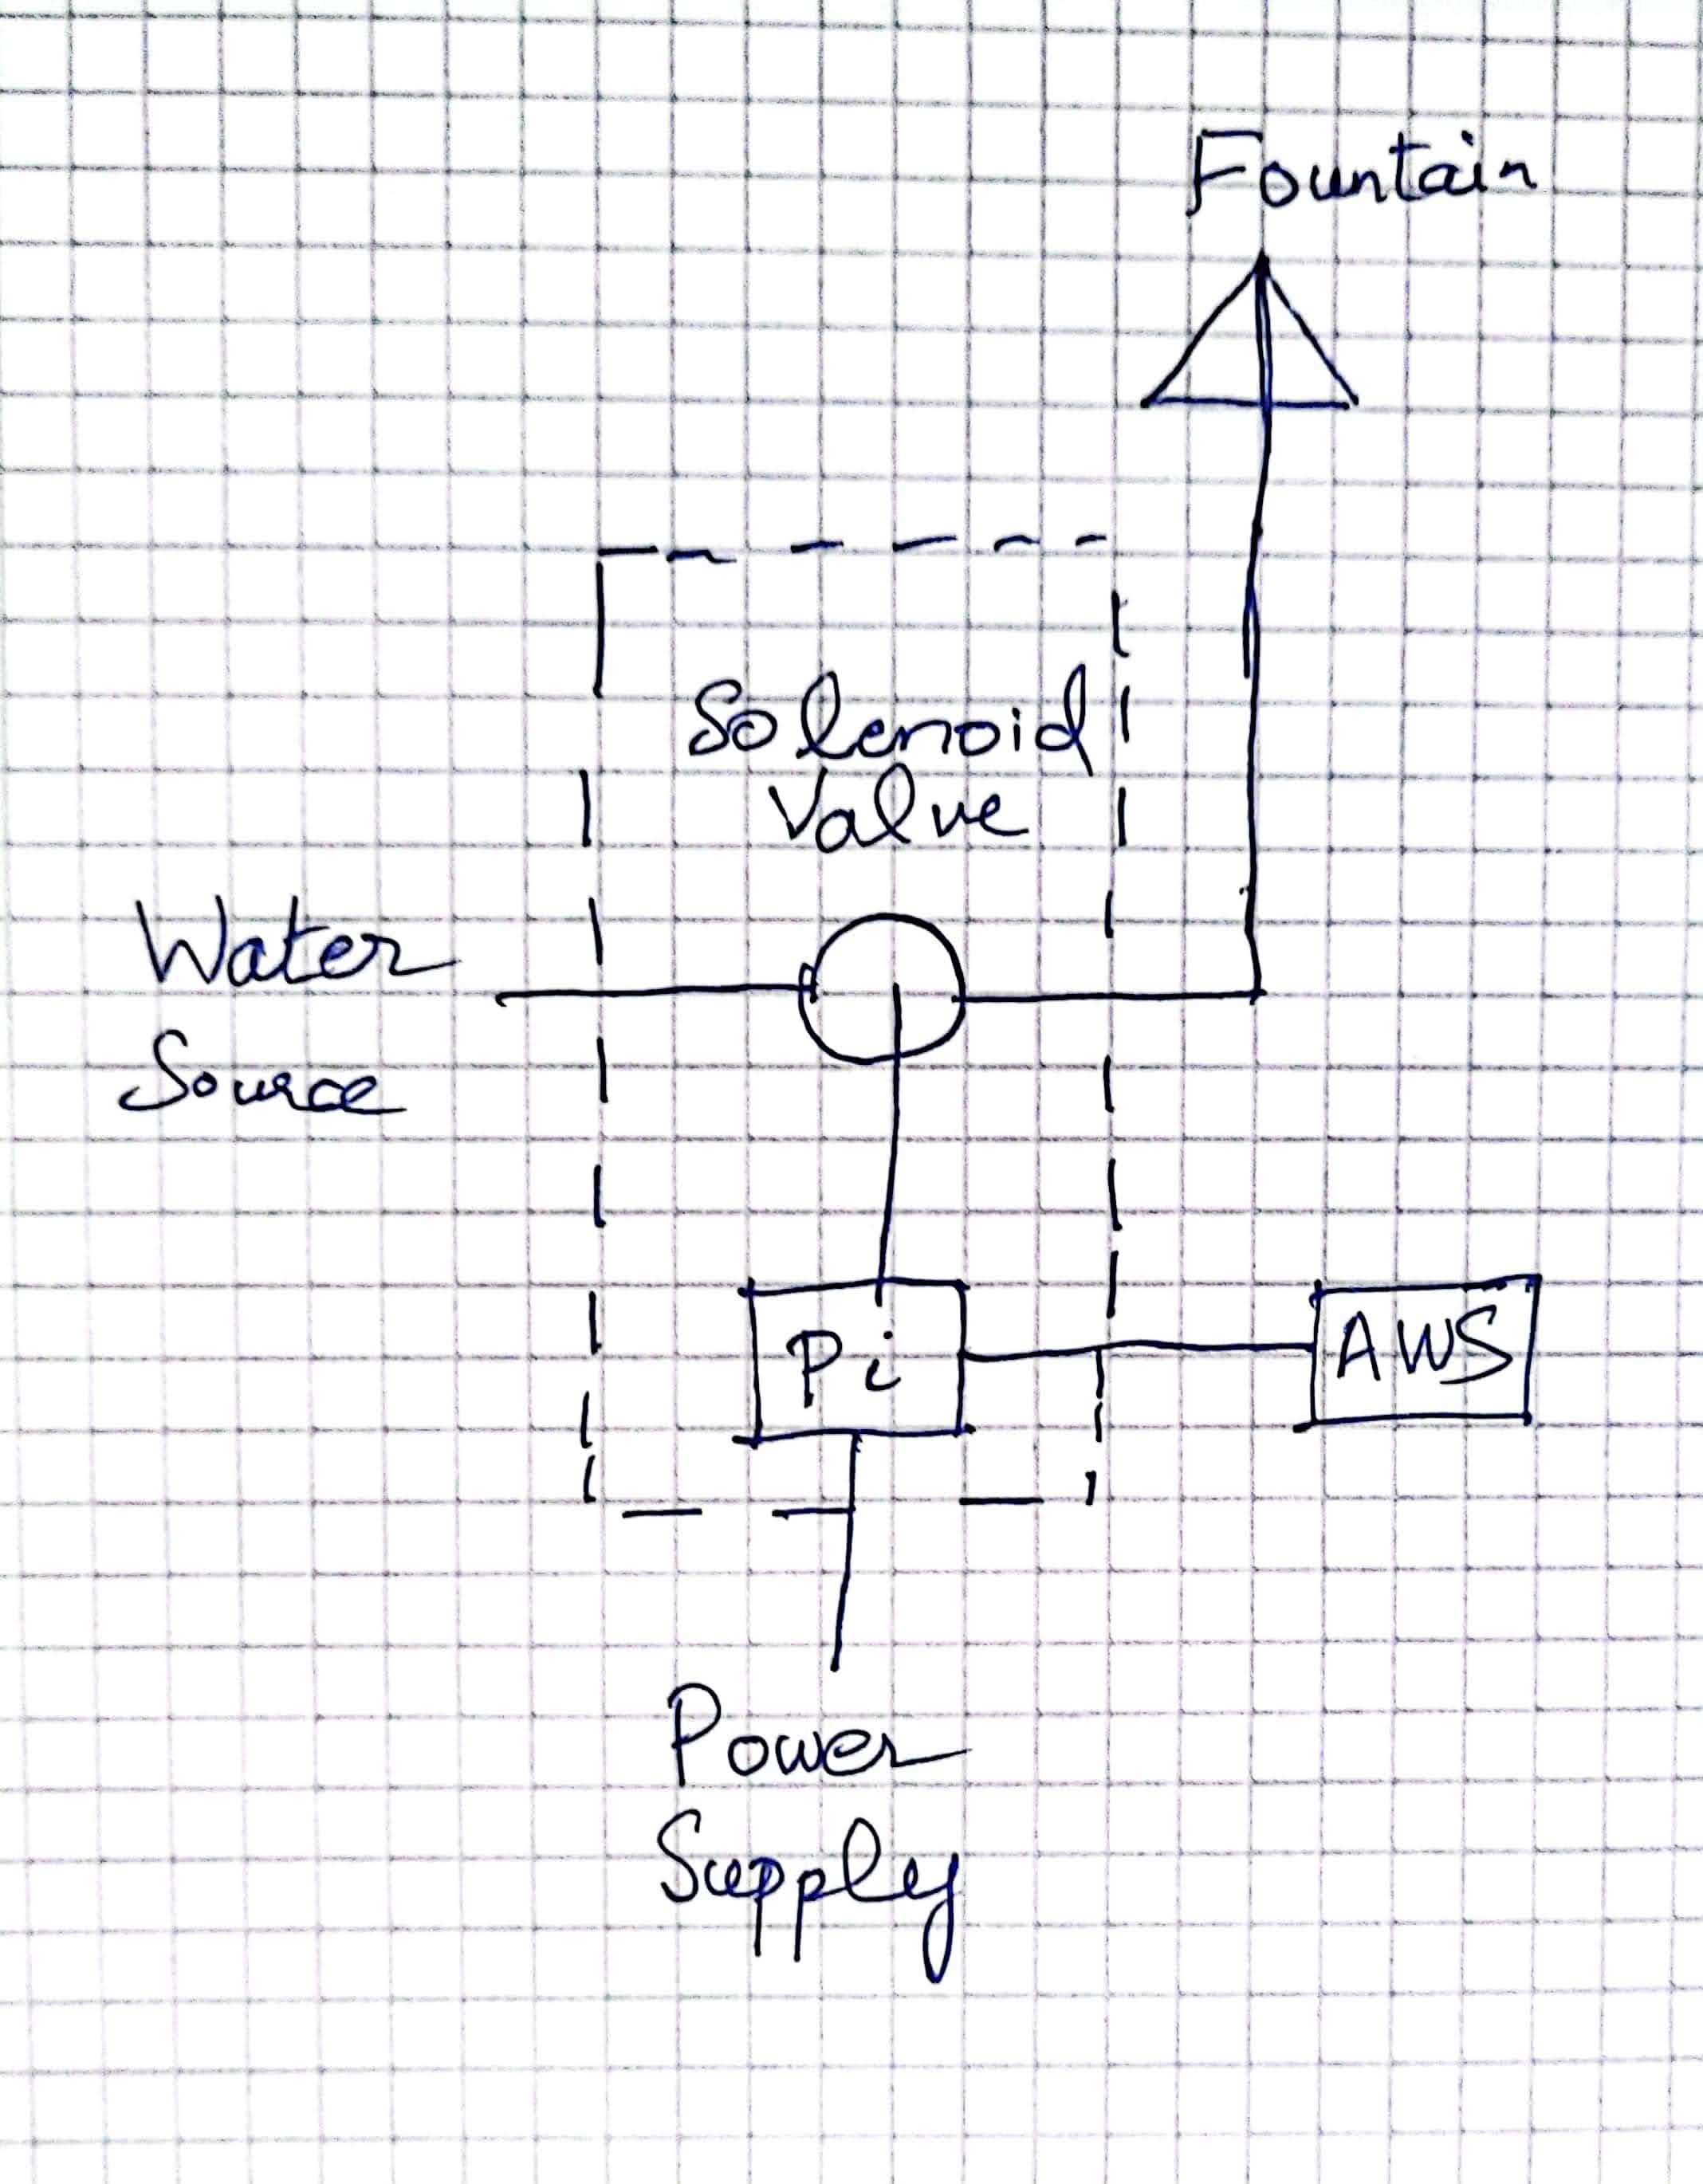 Fountain
Solenoid
Valve
Water
Source
Pi
AWS
Power
Supply